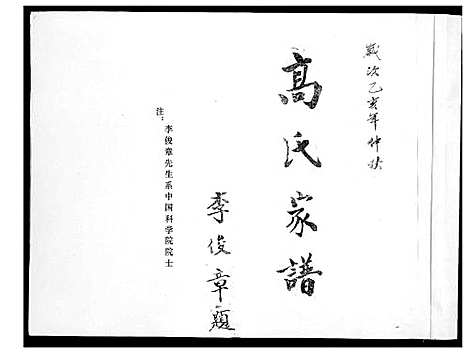 歲次乙亥年仲秋
高氏家譜
李俊章题
注：李俊章先生系中国科学院院士